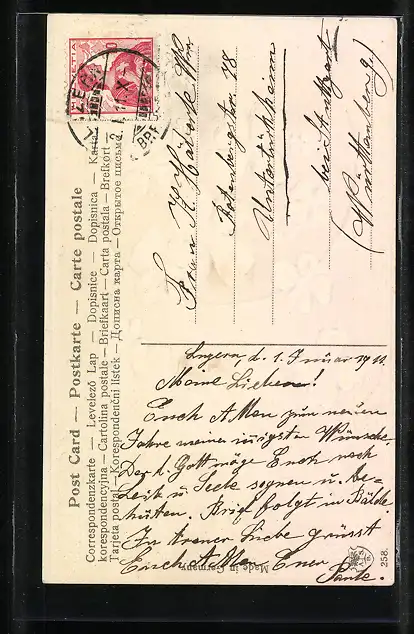 Post Card — Postkarte — Carte postale
Correspondenzkarte — Levelező Lap — Dopisnice — Dopisnica — Karta
korespondencyjna — Cartolina postale — Briefkaart — Carta postala — Brefkort —
Tarjeta postal — Korespondenční lístek — Дописна карта — Открытое письмо.
Frau
Rotenbergstr 78
Untertürkheim
bei Stuttgart
(Württemberg)
Luzern, d. 1. Januar 1911.
Meine Lieben!
Euch Allen zum neuen
Jahre meine innigsten Wünsche.
Der l. Gott möge Euch noch
Leib u. Seele segnen u. be-
hüten. Brief folgt in Bälde
In treuer Liebe grüsst
Euch Alle Euer
Made in Germany
238.